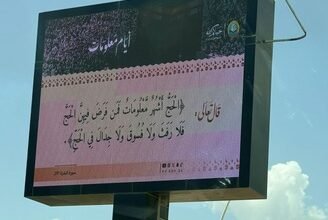 أيام معلومات
قال تعالى:
﴿الْحَجُّ أَشْهُرٌ مَّعْلُومَاتٌ فَمَن فَرَضَ فِيهِنَّ الْحَجَّ
فَلَا رَفَثَ وَلَا فُسُوقَ وَلَا جِدَالَ فِي الْحَجِّ﴾.